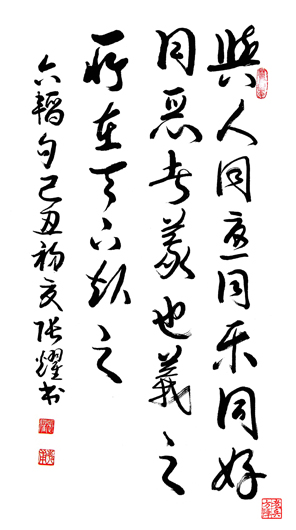 與人同憂同樂同好
同惡者義也義之
所在天下赴之
六韜句己丑初夏張耀書